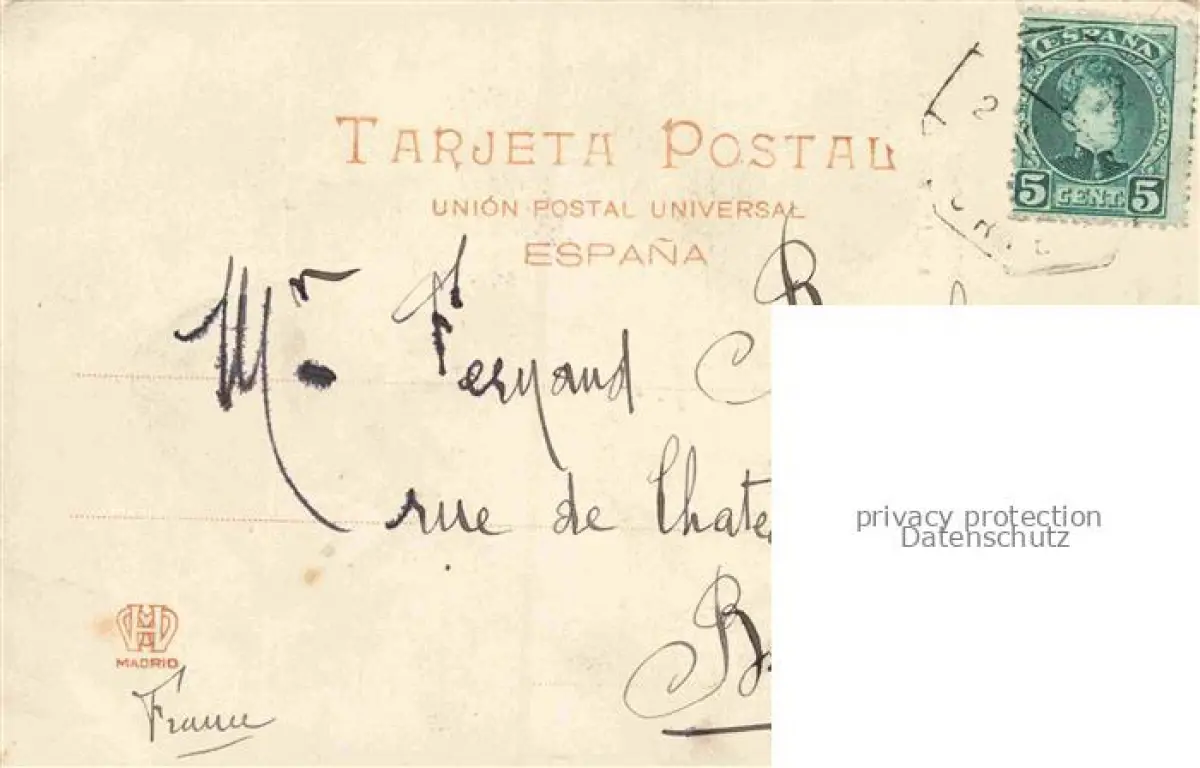 ESPAÑA
5 CENT. 5
TARJETA POSTAL
UNIÓN POSTAL UNIVERSAL
ESPAÑA
Mr. Fernand
rue de
privacy protection
Datenschutz
MADRID
France